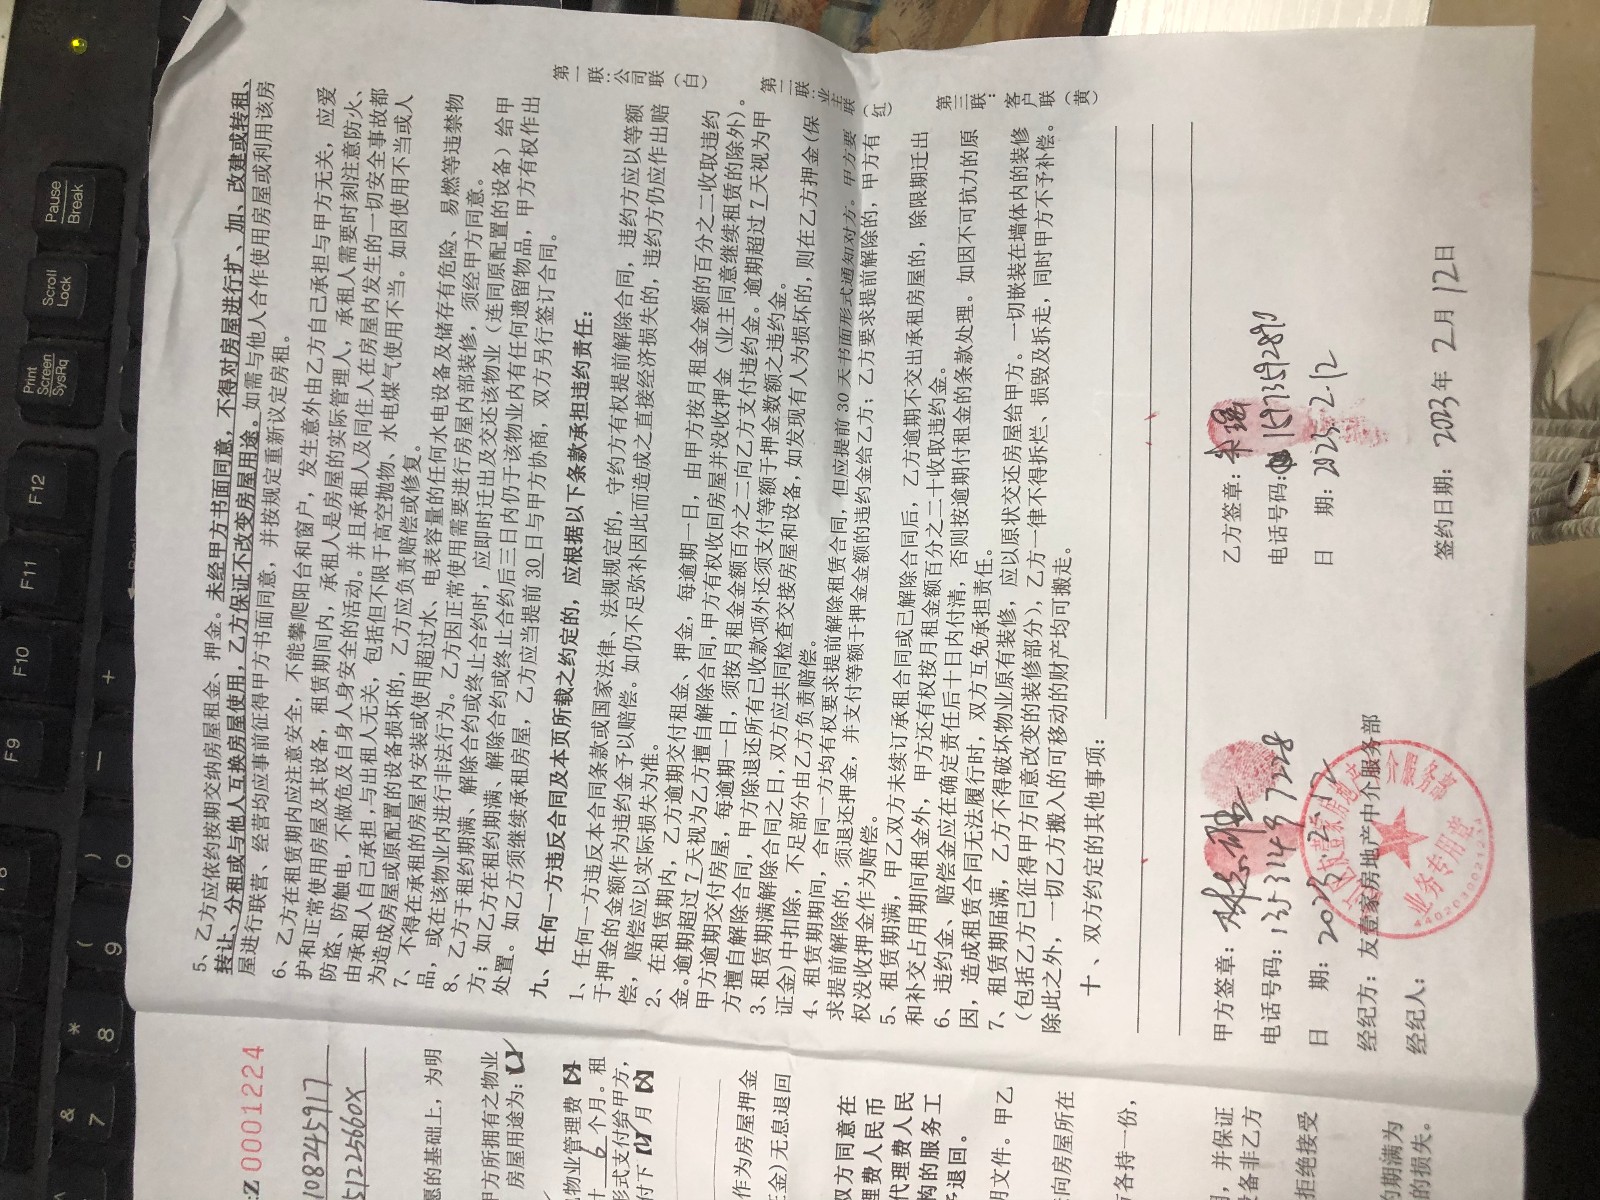 5、乙方应依约按期交纳房屋租金、押金。未经甲方书面同意，不得对房屋进行扩、加、改建或转租、
转让、分租或与他人互换房屋使用，乙方保证不改变房屋用途。如需与他人合作使用房屋或利用该房
屋进行联营、经营均应事前征得甲方书面同意，并按规定重新议定房租。
6、乙方在租赁期内应注意安全，不能攀爬阳台和窗户，发生意外由乙方自己承担与甲方无关，应爱
护和正常使用房屋及其设备，租赁期间内，承租人是房屋的实际管理人，承租人需要时刻注意防火、
防盗、防触电，不做危及自身人身安全的活动。并且承租人及同住人在房屋内发生的一切安全事故都
由承租人自己承担，与出租人无关，包括但不限于高空抛物、水电煤气使用不当。如因使用不当或人
为造成房屋或原配置的设备损坏的，乙方应负责赔偿或修复。
7、不得在承租的房屋内安装或使用超过水、电表容量的任何水电设备及储存有危险、易燃等违禁物
品，或在该物业内进行非法行为。乙方因正常使用需要进行房屋内部装修，须经甲方同意。
8、乙方于租约期满、解除合约或终止合约时，应即时迁出及交还该物业（连同原配置的设备）给甲
方；如乙方在租约期满、解除合约或终止合约后三日内仍于该物业内有任何遗留物品，甲方有权作出
处置。如乙方须继续承租房屋，乙方应当提前 30 日与甲方协商，双方另行签订合同。
九、任何一方违反合同及本页所载之约定的，应根据以下条款承担违约责任：
1、任何一方违反本合同条款或国家法律、法规规定的，守约方有权提前解除合同，违约方应以等额
于押金的金额作为违约金予以赔偿。如仍不足弥补因此而造成之直接经济损失的，违约方仍应作出赔
偿，赔偿应以实际损失为准。
2、在租赁期内，乙方逾期交付租金、押金，每逾期一日，由甲方按月租金金额的百分之二收取违约
金。逾期超过 7 天视为乙方擅自解除合同，甲方有权收回房屋并没收押金（业主同意继续租赁的除外）。
甲方逾期交付房屋，每逾期一日，须按月租金金额百分之二向乙方支付违约金。逾期超过 7 天视为甲
方擅自解除合同，甲方除退还所有已收款项外还须支付等额于押金数额之违约金。
3、租赁期满解除合同之日，双方应共同检查交接房屋和设备，如发现有人为损坏的，则在乙方押金(保
证金)中扣除，不足部分由乙方负责赔偿。
4、租赁期期间，合同一方均有权要求提前解除租赁合同，但应提前 30 天书面形式通知对方。甲方要
求提前解除的，须退还押金，并支付等额于押金金额的违约金给乙方；乙方要求提前解除的，甲方有
权没收押金作为赔偿。
5、租赁期满，甲乙双方未续订承租合同或已解除合同后，乙方逾期不交出承租房屋的，除限期迁出
和补交占用期间租金外，甲方还有权按月租金额百分之二十收取违约金。
6、违约金、赔偿金应在确定责任后十日内付清，否则按逾期付租金的条款处理。如因不可抗力的原
因，造成租赁合同无法履行时，双方互免承担责任。
7、租赁期届满，乙方不得破坏物业原有装修，应以原状交还房屋给甲方。一切嵌装在墙体内的装修
（包括乙方已征得甲方同意改变的装修部分），乙方一律不得拆烂、损毁及拆走，同时甲方不予补偿。
除此之外，一切乙方搬入的可移动的财产均可搬走。
十、双方约定的其他事项：
第一联：公司联（白）
第二联：业主联（红）
第三联：客户联（黄）
甲方签章：
电话号码：13531437228
日 期：2023.2.12
经纪方：友壹家房地产中介服务部
经纪人：
业务专用章
乙方签章：
电话号码：15735912890
日 期：2023-2-12
签约日期：2023年 2月 12日
Z 0001224
108245917
51225660X
愿的基础上，为明
甲方所拥有之物业
房屋用途为：
物业管理费
6 个月。租
形式支付给甲方，
付下 月
作为房屋押金
金)无息退回
双方同意在
理费人民币
代理费人民
构的服务工
退回。
明文件。甲乙
向房屋所在
各持一份，
，并保证
设备非乙方
拒绝接受
期满为
的损失。
Pause
Break
Scroll
Lock
Print
Screen
SysRq
F12
F11
F10
F9
F8
)
0
(
9
*
8
&
7
^
+
—